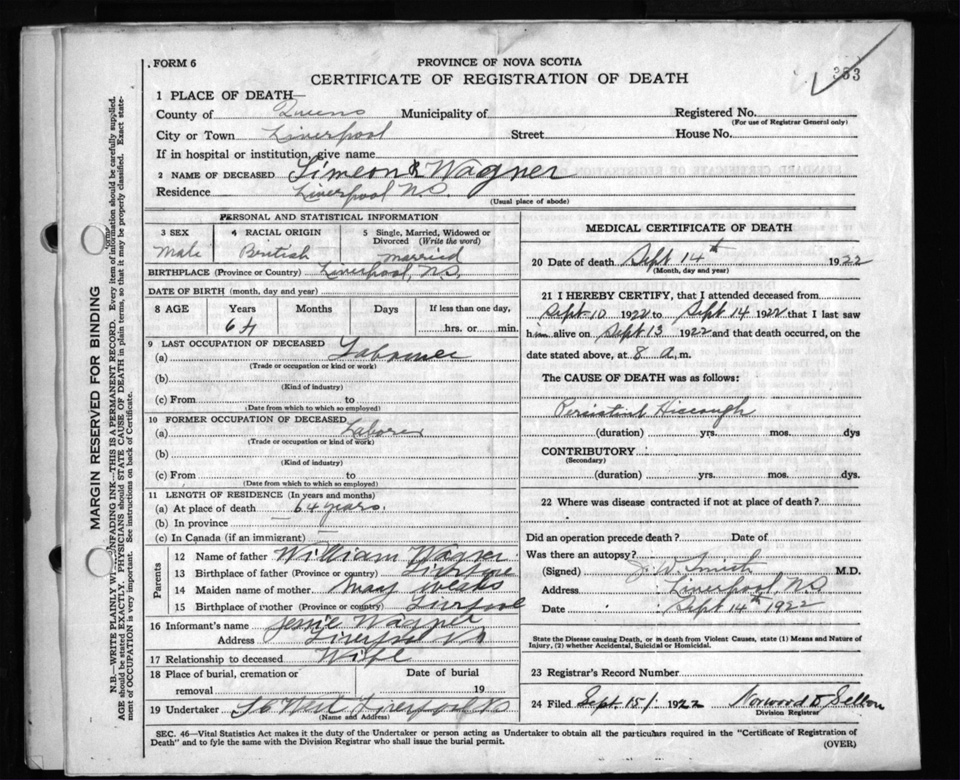 FORM 6
PROVINCE OF NOVA SCOTIA
CERTIFICATE OF REGISTRATION OF DEATH
353
1 PLACE OF DEATH—
County of Queens Municipality of Registered No.
(For use of Registrar General only)
City or Town Liverpool Street House No.
If in hospital or institution, give name
2 NAME OF DECEASED Simeon Wagner
Residence Liverpool N.S.
(Usual place of abode)
PERSONAL AND STATISTICAL INFORMATION
3 SEX 4 RACIAL ORIGIN 5 Single, Married, Widowed or Divorced (Write the word)
Male British married
BIRTHPLACE (Province or Country) Liverpool, N.S.
DATE OF BIRTH (month, day and year)
8 AGE Years Months Days If less than one day,
64 hrs. or min.
9 LAST OCCUPATION OF DECEASED
(a) Labourer
(Trade or occupation or kind or work)
(b)
(Kind of industry)
(c) From to
(Date from which to which so employed)
10 FORMER OCCUPATION OF DECEASED
(a) Laborer
(Trade or occupation or kind of work)
(b)
(Kind of industry)
(c) From to
(Date from which to which so employed)
11 LENGTH OF RESIDENCE (In years and months)
(a) At place of death 64 years.
(b) In province
(c) In Canada (if an immigrant)
Parents
12 Name of father William Wagner
13 Birthplace of father (Province or country)
14 Maiden name of mother Mary
15 Birthplace of mother (Province or country) Liverpool
16 Informant's name Jessie Wagner
Address Liverpool N.S.
17 Relationship to deceased Wife
18 Place of burial, cremation or Date of burial
removal 19
19 Undertaker Liverpool N.S.
(Name and Address)
MEDICAL CERTIFICATE OF DEATH
20 Date of death Sept 14th 1922
(Month, day and year)
21 I HEREBY CERTIFY, that I attended deceased from
Sept 10 1922 to Sept 14 1922 that I last saw
him alive on Sept 13 1922 and that death occurred, on the
date stated above, at 8 a.m.
The CAUSE OF DEATH was as follows:
Persistent Hiccough
(duration) yrs. mos. dys
CONTRIBUTORY
(Secondary)
(duration) yrs. mos. dys.
22 Where was disease contracted if not at place of death?
Did an operation precede death? Date of
Was there an autopsy?
(Signed) J. W. Smith M.D.
Address Liverpool, N.S
Date Sept 14th 1922
State the Disease causing Death, or in death from Violent Causes, state (1) Means and Nature of
Injury, (2) whether Accidental, Suicidal or Homicidal.
23 Registrar's Record Number
24 Filed Sept. 15/ 1922
Division Registrar
SEC. 46—Vital Statistics Act makes it the duty of the Undertaker or person acting as Undertaker to obtain all the particulars required in the "Certificate of Registration of
Death" and to fyle the same with the Division Registrar who shall issue the burial permit.
(OVER)
MARGIN RESERVED FOR BINDING
N.B.—WRITE PLAINLY WITH UNFADING INK—THIS IS A PERMANENT RECORD. Every item of information should be carefully supplied.
AGE should be stated EXACTLY. PHYSICIANS should STATE CAUSE OF DEATH in plain terms, so that it may be properly classified. Exact state-
ment of OCCUPATION is very important. See instructions on back of Certificate.